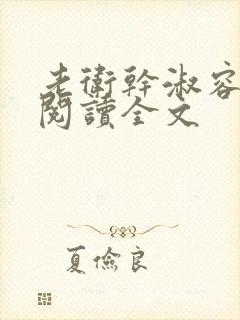 老衛幹淑容
閱讀全文
夏儉良